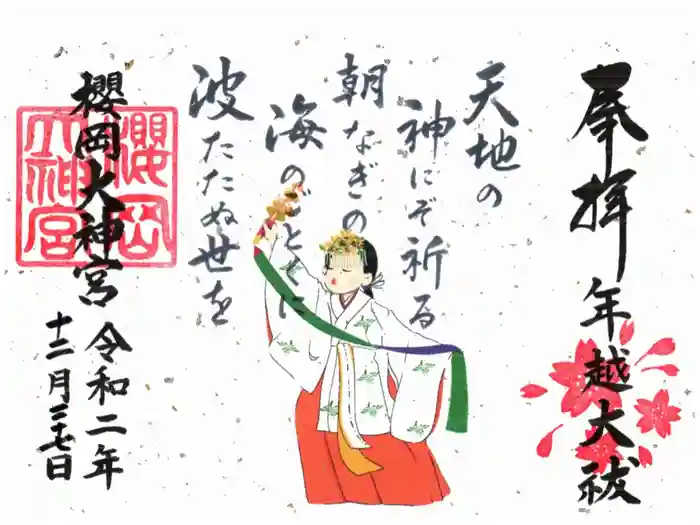 奉拝
年越大祓
天地の
神にぞ祈る
朝なぎの
海のごとくに
波たたぬ世を
櫻岡大神宮
櫻岡
大神宮
令和二年
十二月二十七日